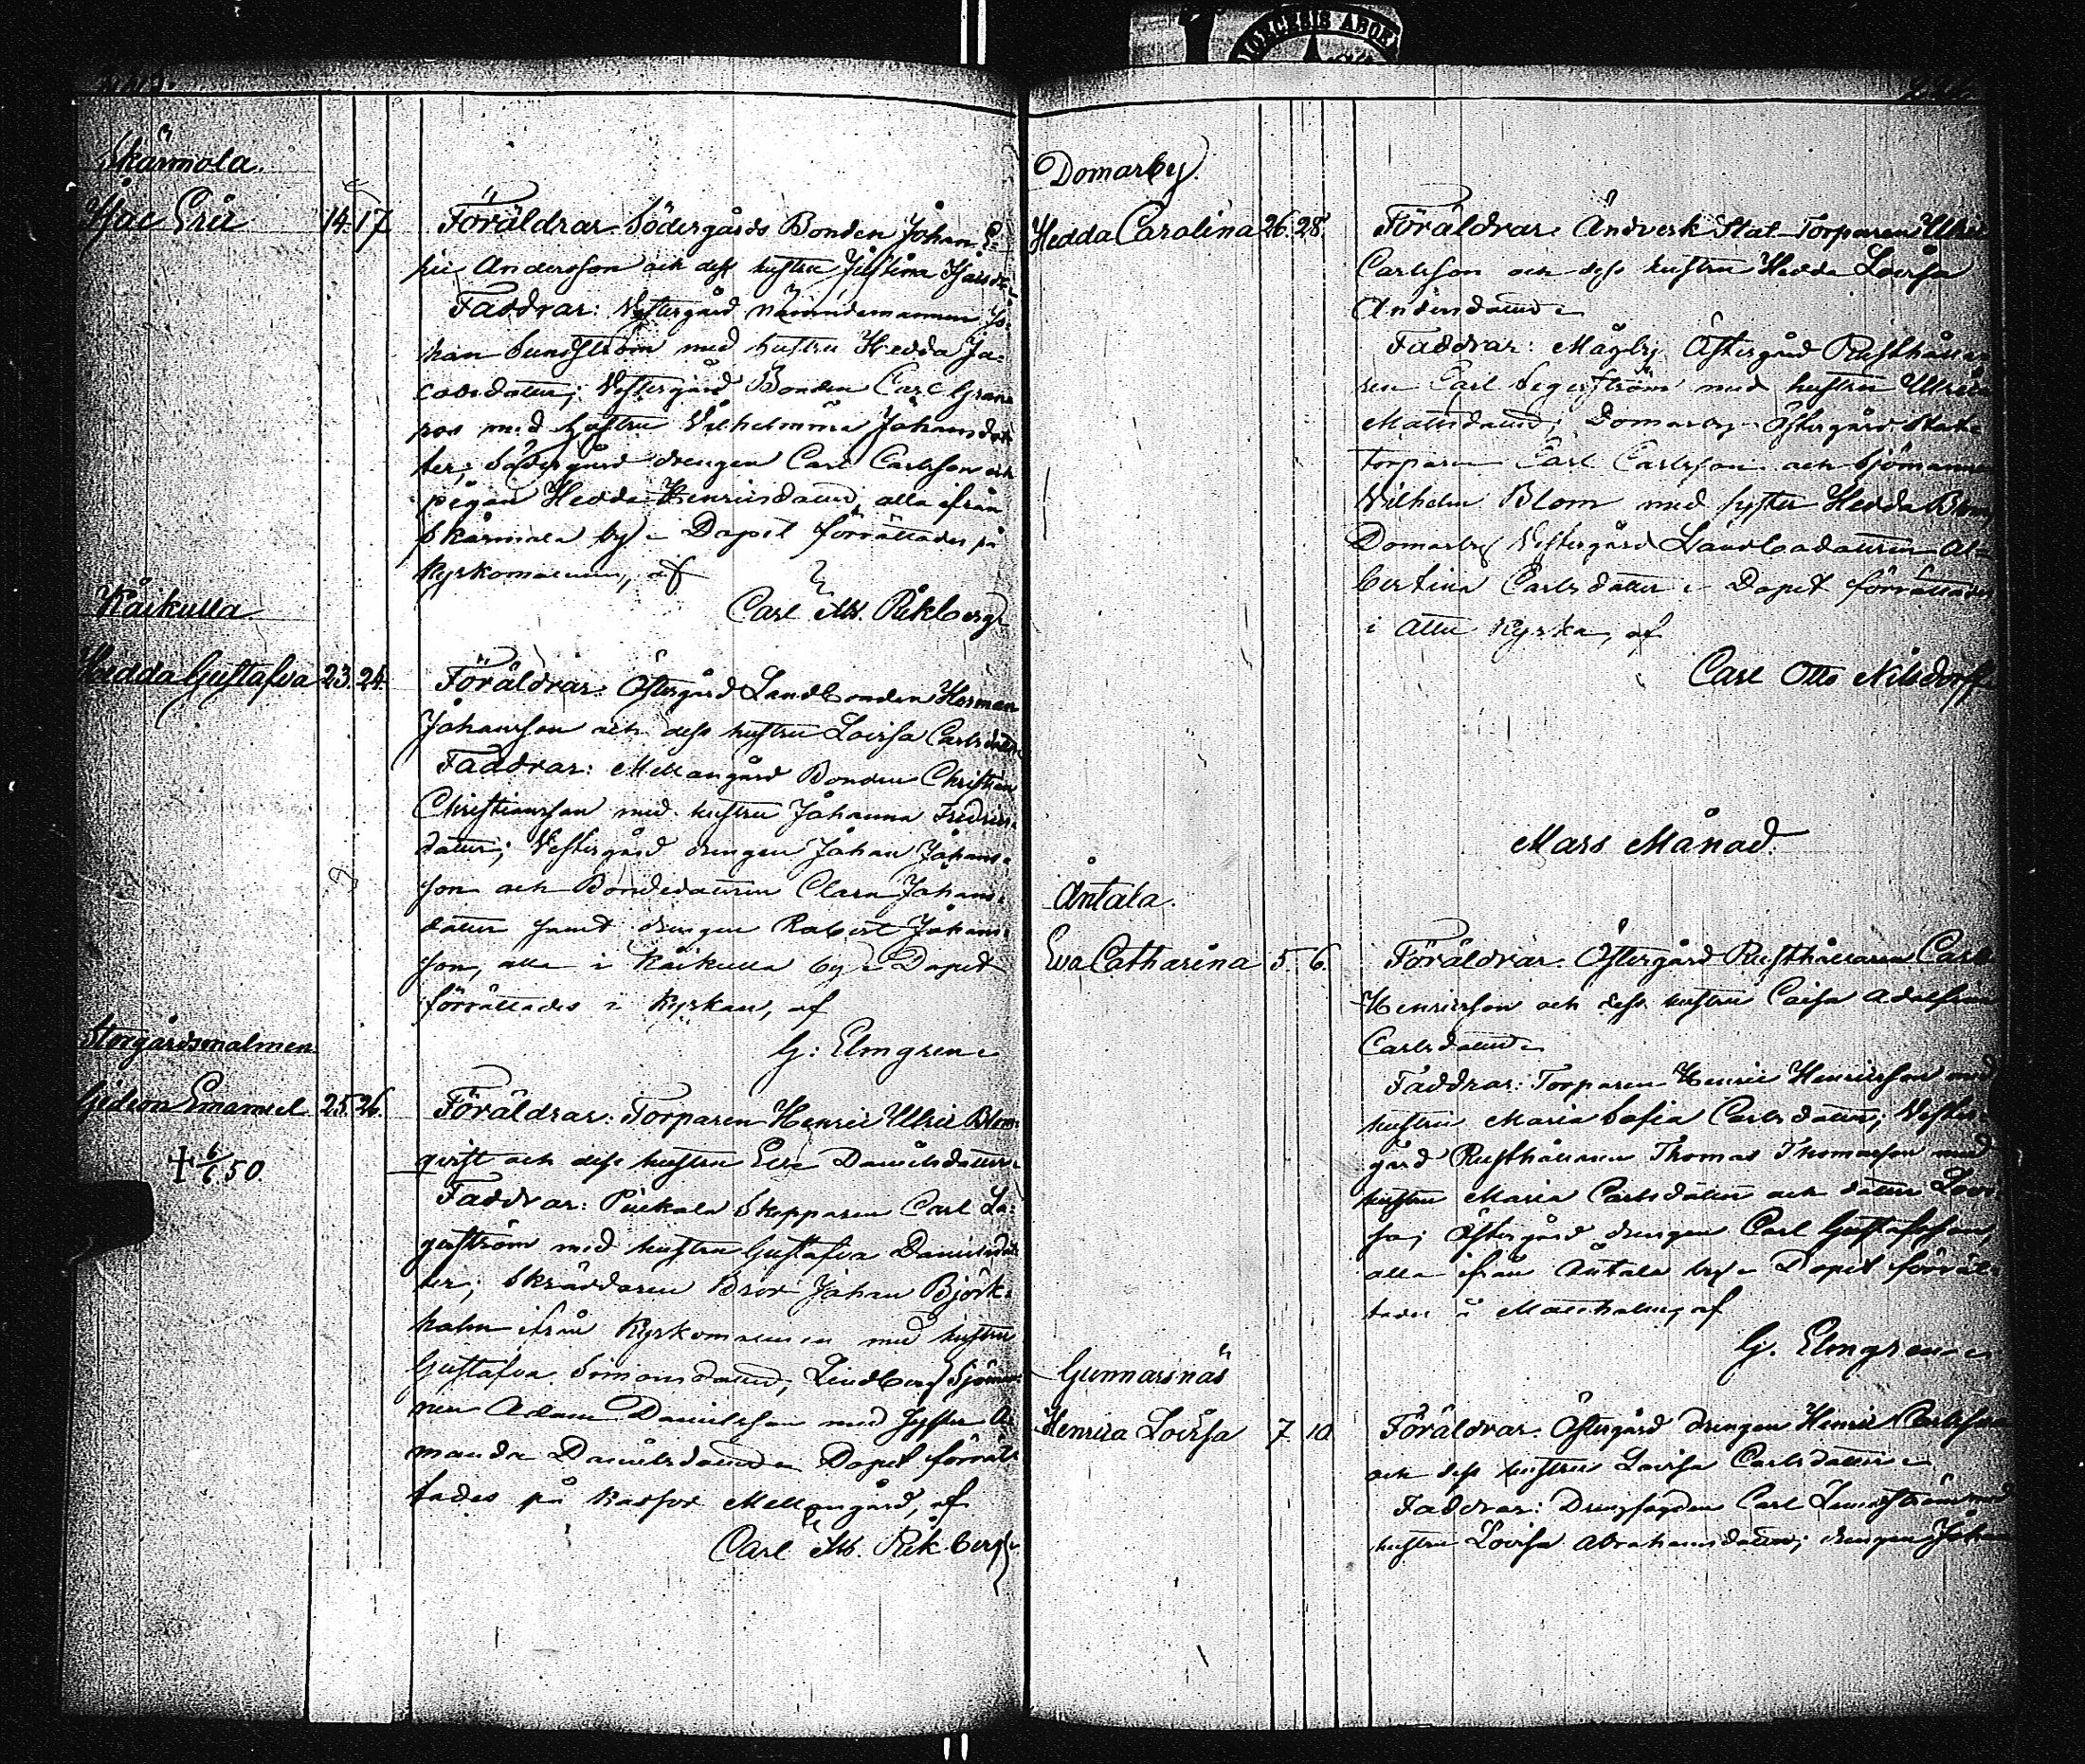 Skärmola.
Isac Eric 14. 17. Föräldrar Södergårds Bonden Johan E=
ric Andersson och dess hustru Justina Isacsdr
Faddrar: Vestergård Nämndemannen Jo=
han Sundström med hustru Hedda Ja=
cobsdatter; Vestergård Bonden Carl Gran
roos med hustru Vilhelmina Johansdot
ter; Södergård drengen Carl Carlsson och
pigan Hedda Henricsdatter, alla ifrån
Skärmola by. Dopet förrättades på
Kyrkomalmen, af
Carl Ab. Rikberg
Kåikulla.
Hedda Gustafva 23. 24. Föräldrar: Östergård Landbonden Herman
Johansson och dess hustru Lovisa Carlsdatter
Faddrar: Mellangård Bonden Christian
Christiansson med hustru Johanna Fredrics
datter; Vestergård drengen Johan Johans=
son och Bondedatteren Clara Johans=
datter samt drengen Robert Johans=
son, alla i Kåikulla by. Dopet
förrättades i Kyrkan, af
G: Elmgren
Storgårdsmalmen.
Gideon Emanuel 25. 26. Föräldrar: Torparen Henric Ulric Blom=
† 6/6 50
qvist och dess hustru Eva Danielsdatter
Faddrar: Puckala Skepparen Carl La=
gerström med hustru Gustafva Danielsdat
ter; Skräddaren Bror Johan Björk=
holm ifrån Kyrkomalmen med hustru
Gustafva Simonsdatter, Lindberg Sjöman
nen Adam Danielsson med syster A
manda Danielsdatter. Dopet förrät
tades på Karsor Mellangård, af
Carl Ab. Rikberg
Domarby.
Hedda Carolina 26. 28. Föräldrar: Åndverk Stat-Torparen Ulric
Carlsson och dess hustru Hedda Lovisa
Andersdatter
Faddrar: Mågby Östergård Rusthålla
ren Carl Segerström med hustru Ulrica
Mattsdatter; Domarby Östergård Stat
torparen Carl Carlsson och Sjömannen
Vilhelm Blom med syster Hedda Blom,
Domarby Vestergård Landbodatteren Al=
bertina Carlsdatter. Dopet förrättades
i Attu Kyrka, af
Carl Otto Nilsdorff
Mars Månad.
Åntala.
Eva Catharina 5. 6. Föräldrar. Östergård Rusthållaren Carl
Henricsson och dess hustru Caisa Adolfina
Carlsdatter
Faddrar: Torparen Henric Henricsson med
hustru Maria Sofia Carlsdatter; Vester
gård Rusthållaren Thomas Thomasson med
hustru Maria Carlsdatter och datter Lovi
sa; Östergård drengen Carl Gustafsson,
alla ifrån Åntala by. Dopet förrät=
tades å Malmholm, af
G. Elmgren
Gunnarsnäs
Henrica Lovisa 7. 10 Föräldrar. Östergård drengen Henric Carlsson
och dess hustru Lovisa Carlsdatter
Faddrar: Drengfogden Carl Lindström med
hustru Lovisa Abrahamsdatter; drengen Johan